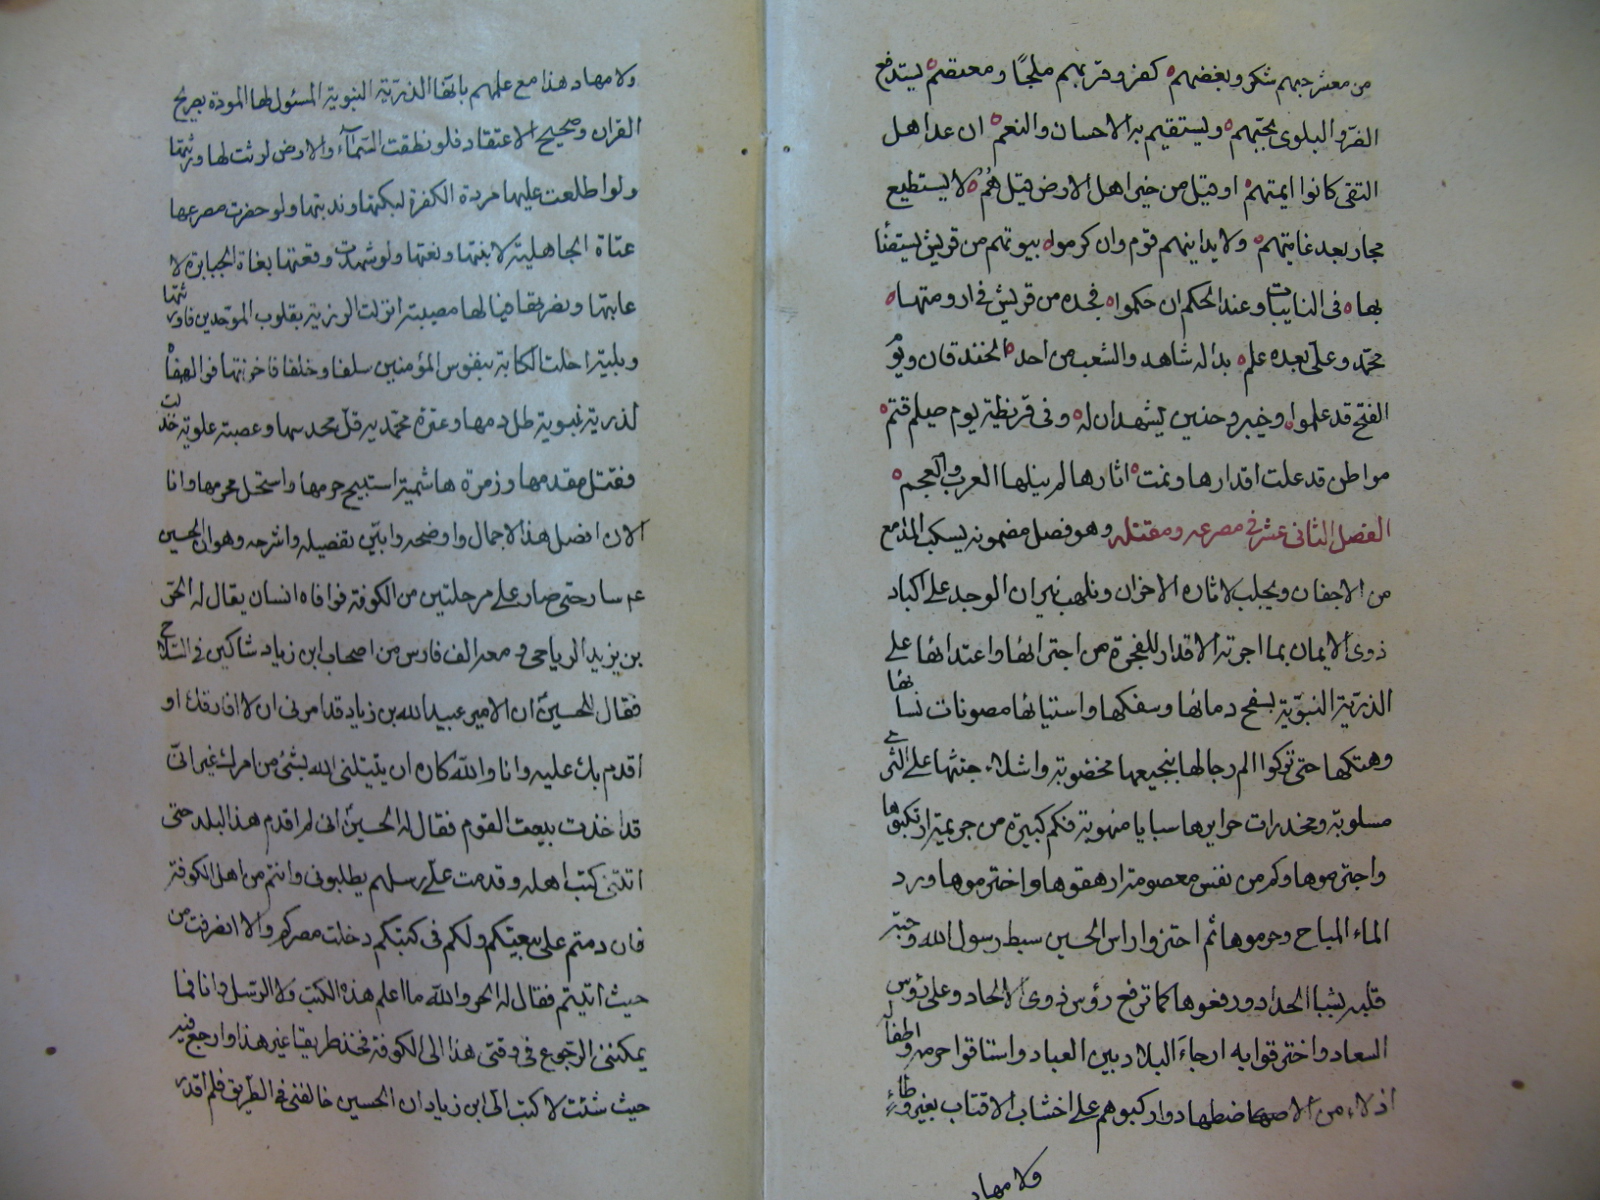 من معشر حبهم شكر وبغضهم كفر وقربهم ملجًا ومعتصم يستدفع
الضرّ والبلوى بحبّهم ويستقيم به الاحسان والنعم ان عد اهل
التقى كانوا ايمتهم او قيل من خير اهل الارض قيل هُمُ لا يستطيع
مجار بعد غايتهم ولا يدانيهم قوم وان كرموا بيوتهم من قريش يستضأ
بها فى النايبات وعند الحكم ان حكموا فجده من قريش فى ارومتها
محمّد وعلىّ بعده علم بدا له شاهد والشعب من احد الخندقان ويوم
الفتح قد علموا وخيبر وحنين يشهدان له وفى قريظة يوم صيلم قتم
مواطن قد علت اقدارها ونمت اثارها لم ينلها العرب والعجم
الفصل الثانى عشر فى مصرعه ومقتله وهو فصل مضمونه يسكب المدامع
من الاجفان ويجلب لاثاره الاحزان وتلهب نيران الوجد على اكباد
ذوى الايمان بما اجرته الاقدار للفجرة من اجترائها واعتدائها على
الذريّة النبويّة بسفح دمائها وسفكها واستبائها مصونات نسائها
وهتكها حتى تركوا لمم رجالها بنجيعها مخضوبة واشلاء جثتها على الثرى
مسلوبة ومخدرات حرايرها سبايا منهوبة فكم كبيرة من جريمة ارتكبوها
واجترموها وكم من نفس معصومة ازهقوها واخترموها ورد
الماء المباح وحرموها ثم احتزوا راس الحسين سبط رسول الله وحبّة
قلبه بشبا الحداد ورفعوها كما ترفع رؤس ذوى الالحاد وعلى رؤس
السعاد واخترقوا به ارجاء البلاد بين العباد واستاقوا حرمه واطفاله
اذلاء من الاضطهاد واركبوهم على اخشاب الاقتاب بغير وطاء
ولا مهاد
ولا مهاد هذا مع علمهم بانّها الذريّة النبوية المسئول لها المودة بصريح
القران وصحيح الاعتقاد فلو نطقت السّمآء والارض لرثت لها ورثتها
ولو اطلعت عليها مردة الكفرة لبكتها وندبتها ولو حضرت مصرعها
عتاة الجاهلية لابنتها ونعتها ولو شهدت وقعتها بغاة الجبابرة لا
عانتها ونصرتها فيا لها مصيبة انزلت الرزية بقلوب الموحدين فاورثتها
وبلية احلت الكابة بنفوس المؤمنين سلفا وخلفا فاحزنتها فوا لهفا
لذرية نبوية طل دمها وعترة محمّدية قلّ محدمها وعصبة علوية خذلت
فقتل مقدمها وزمرة هاشمية استبيح حرمها واستحل محرمها وانا
الان افصل هذا الاجمال واوضحه وابيّن تفصيله واشرحه وهو ان الحسين
عم سار حتى صار على مرحلتين من الكوفة فوافاه انسان يقال له الحرّ
بن يزيد الرياحى ومعه الف فارس من اصحاب ابن زياد شاكين فى السّلاح
فقال للحسينؑ ان الامير عبيد الله بن زياد قد امرنى ان لا افارقك او
اقدم بك عليه وانا والله كاره ان يبتلينى الله بشئ من امرك غير انّى
قد اخذت بيعت القوم فقال له الحسينؑ انى لم اقدم هذا البلد حتى
اتتنى كتب اهله وقدمت علىّ رسلهم يطلبونى وانتم من اهل الكوفة
فان دمتم على بيعتكم ولكم فى كتبكم دخلت مصركم والا انصرفت من
حيث اتيتم فقال له الحر والله ما اعلم هذه الكتب ولا الرّسل وانا فما
يمكننى الرجوع فى وقتى هذا الى الكوفة فخذ طريقا غير هذا وارجع فيه
حيث شئت لاكتب الى ابن زياد ان الحسين خالفنى فى الطّريق فلم اقدر